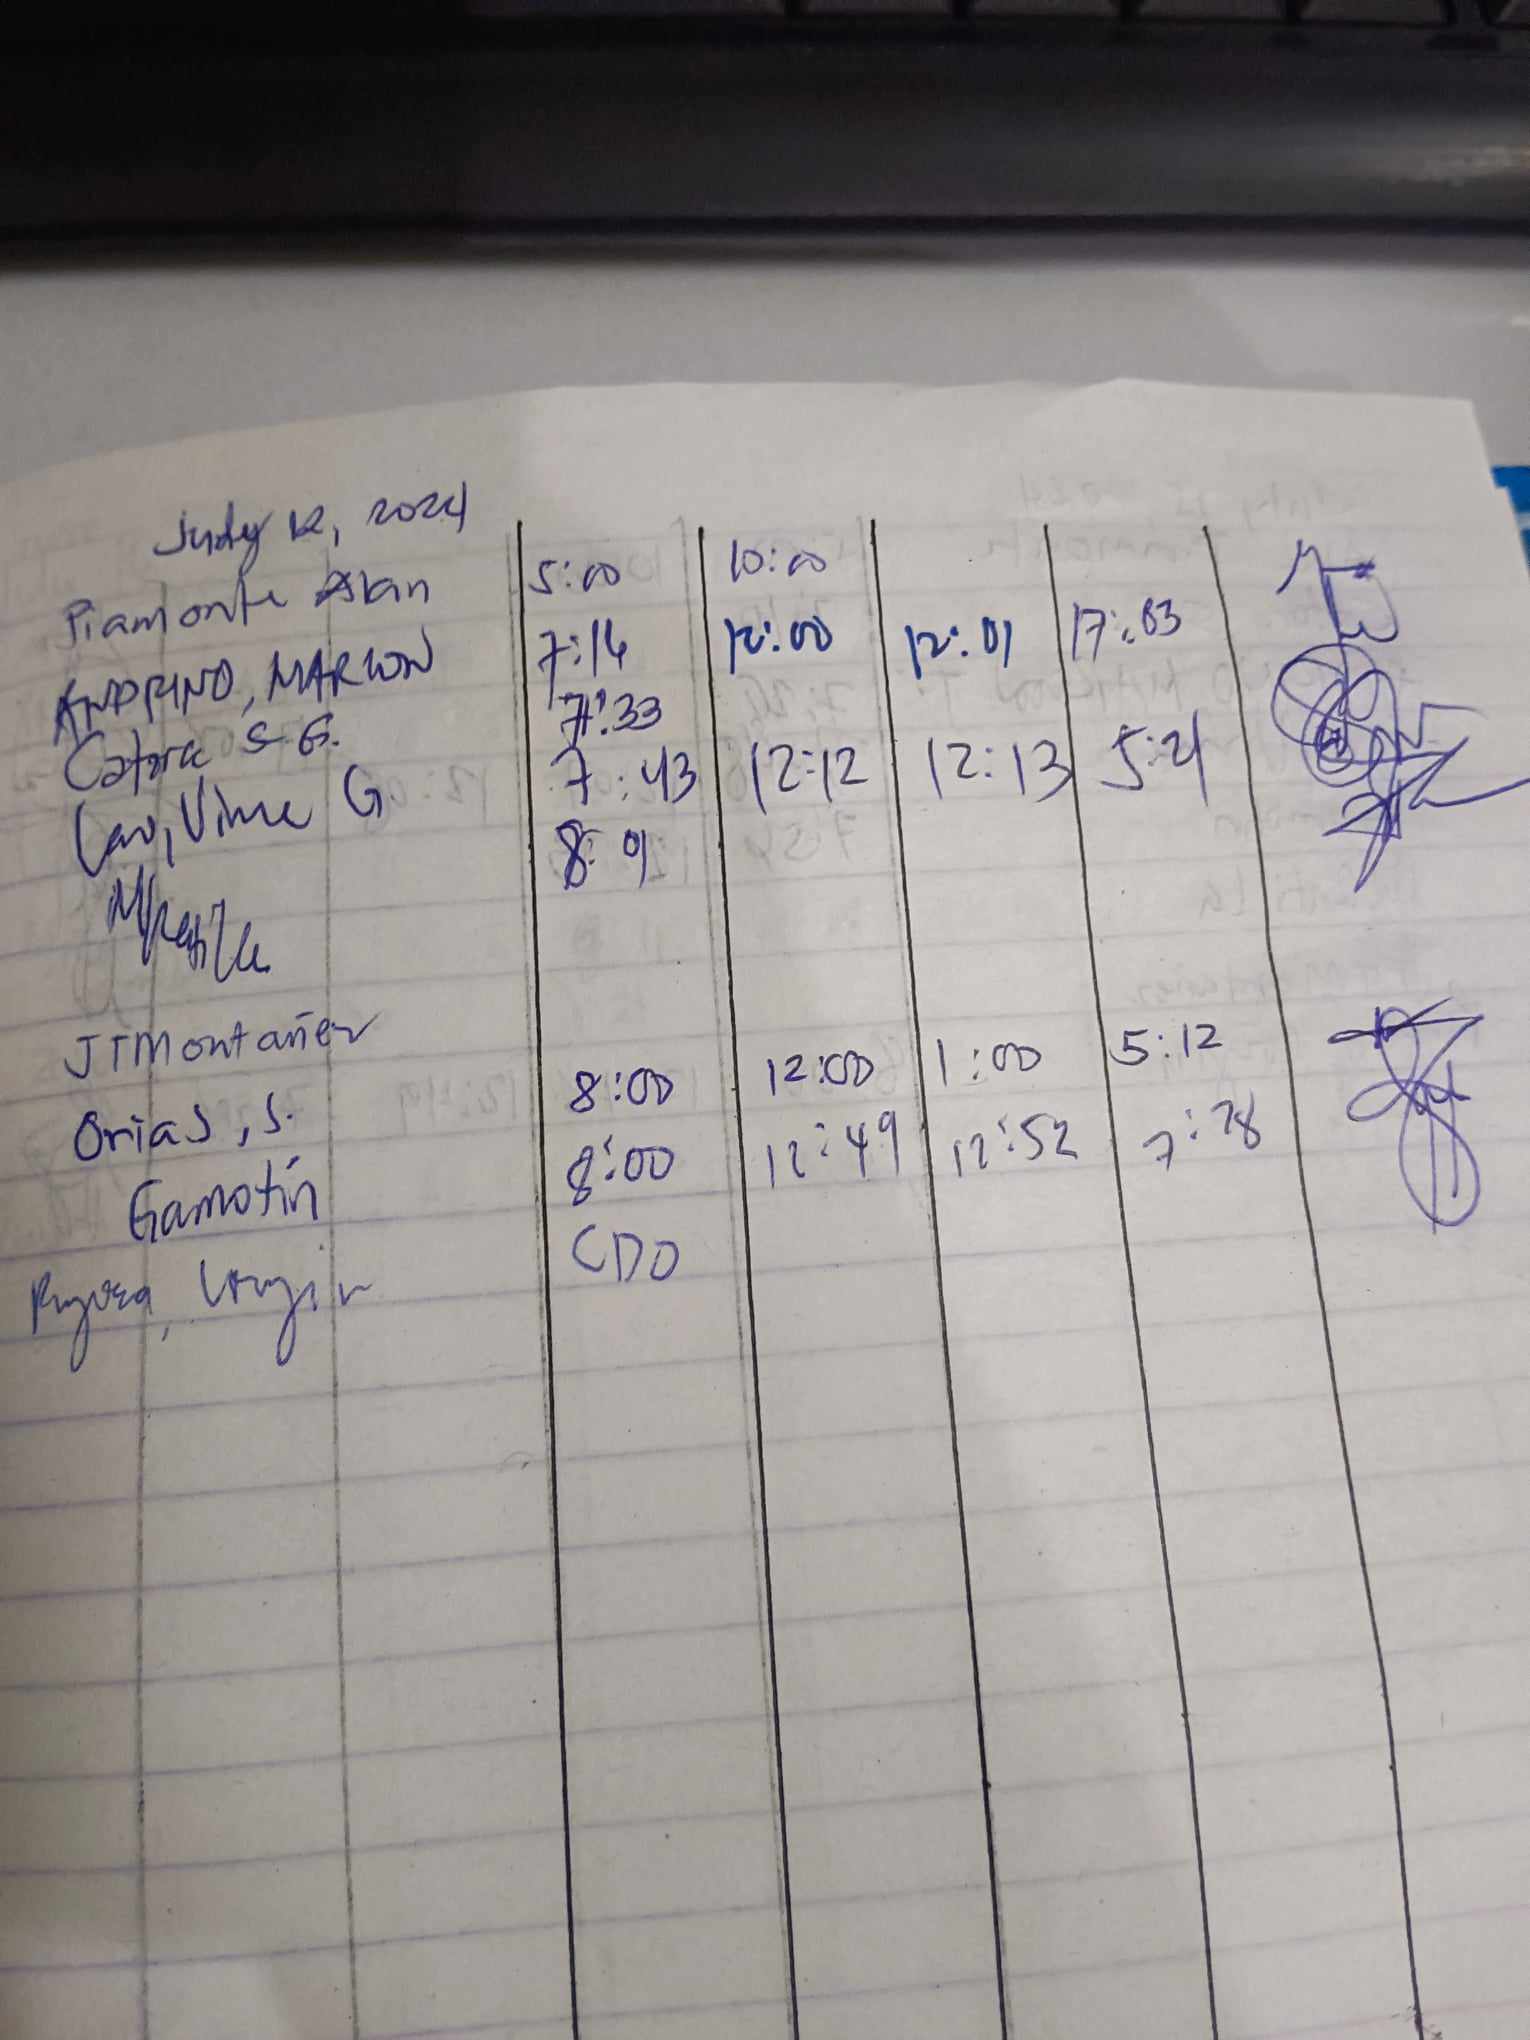 July 12, 2024
Piamonte Alan 5:00 10:00
ANDRINO, MARLON 7:16 12:00 12:01 17:03
S.G. 7:33
Vince G 7:43 12:12 12:13 5:21
8:01
JTMontañer
Orias, S. 8:00 12:00 1:00 5:12
Gamotin 8:00 12:49 12:52 7:28
CDO